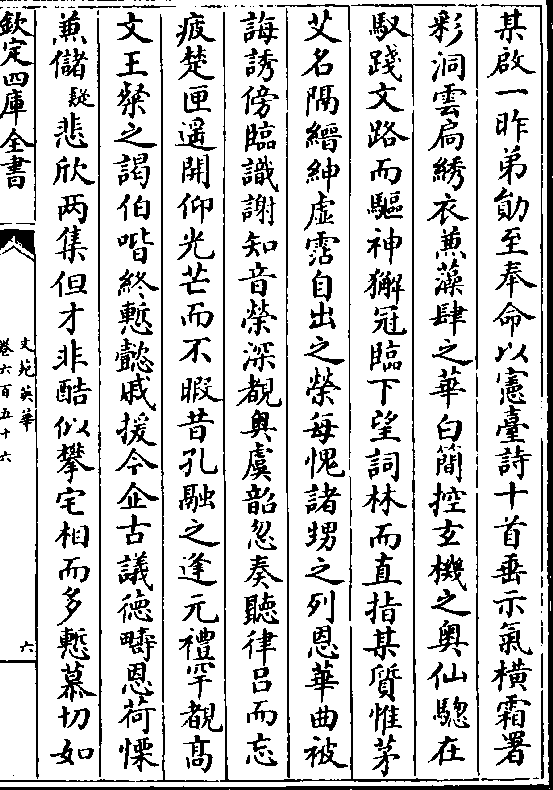 某啟一昨弟勛至奉命以憲臺詩十首垂示氣橫霜署
彩洞雲扃綉衣蕙藻肆之華白簡控玄機之奥仙驄在
馭踐文路而驅神獬冠臨下望詞林而直指某質惟茅
艾名隔縉紳虚霑自出之榮每愧諸甥之列恩華曲被
誨誘傍臨識謝知音榮深覩奥虞韶忽奏聽律吕而忘
疲楚匣遥開仰光芒而不暇昔孔融之逢元禮罕覩髙
文王粲之謁伯喈終慙懿戚援今企古議徳疇恩荷慄
蕙儲疑悲欣两集但才非酷似攀宅相而多慙慕切如
欽定四庫全書
文苑英華
卷六百五十六
六